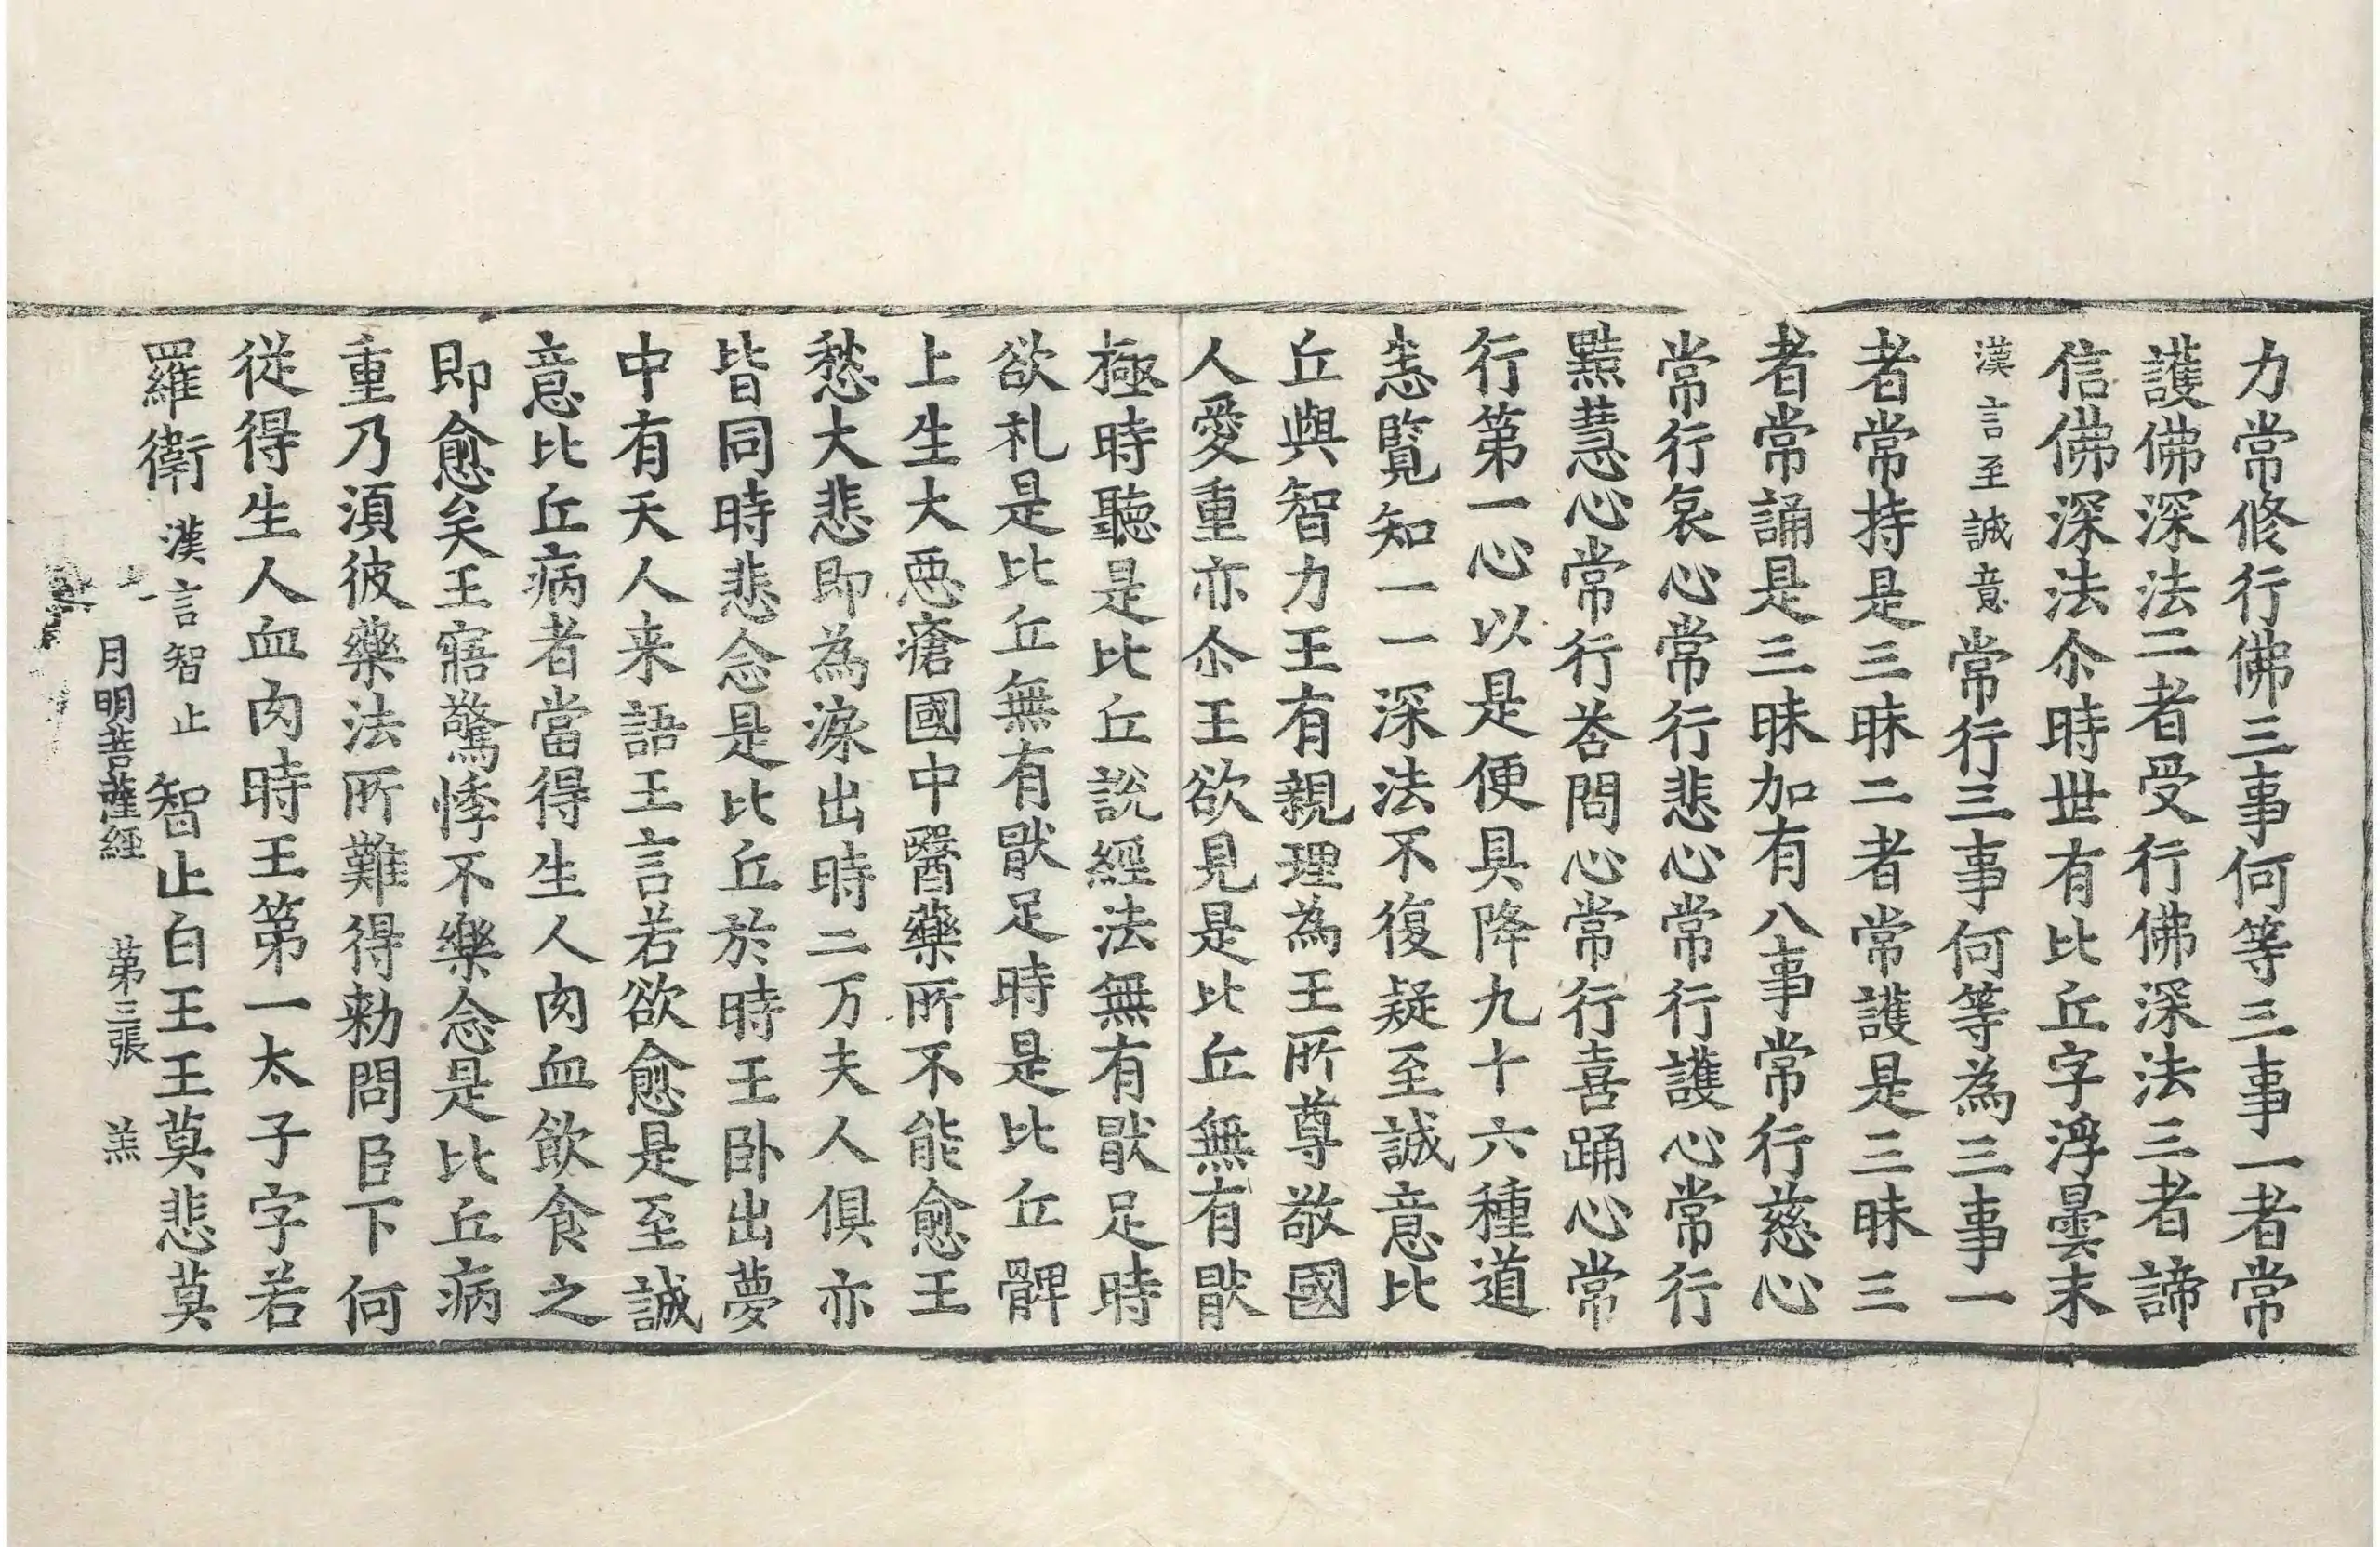 力常修行佛三事何等三事一者常
護佛深法二者受行佛深法三者諦
信佛深法尒時世有比丘字浮曇末
漢言至誠意常行三事何等為三事一
者常持是三昧二者常護是三昧三
者常誦是三昧加有八事常行慈心
常行哀心常行悲心常行護心常行
黠慧心常行荅問心常行喜踊心常
行第一心以是便具降九十六種道
悉覽知一一深法不復疑至誠意比
丘與智力王有親理為王所尊敬國
人愛重亦尒王欲見是比丘無有猒
極時聽是比丘說經法無有猒足時
欲札是比丘無有猒足時是比丘髀
上生大惡瘡國中醫藥所不能愈王
愁大悲即為淚出時二万夫人俱亦
皆同時悲念是比丘於時王卧出夢
中有天人来語王言若欲愈是至誠
意比丘病者當得生人肉血飲食之
即愈矣王寤驚悸不樂念是比丘病
重乃湏彼藥法所難得勑問臣下何
従得生人血肉時王第一太子字若
羅衛漢言智止智止白王王莫悲莫
月明菩薩經 第三張 羔